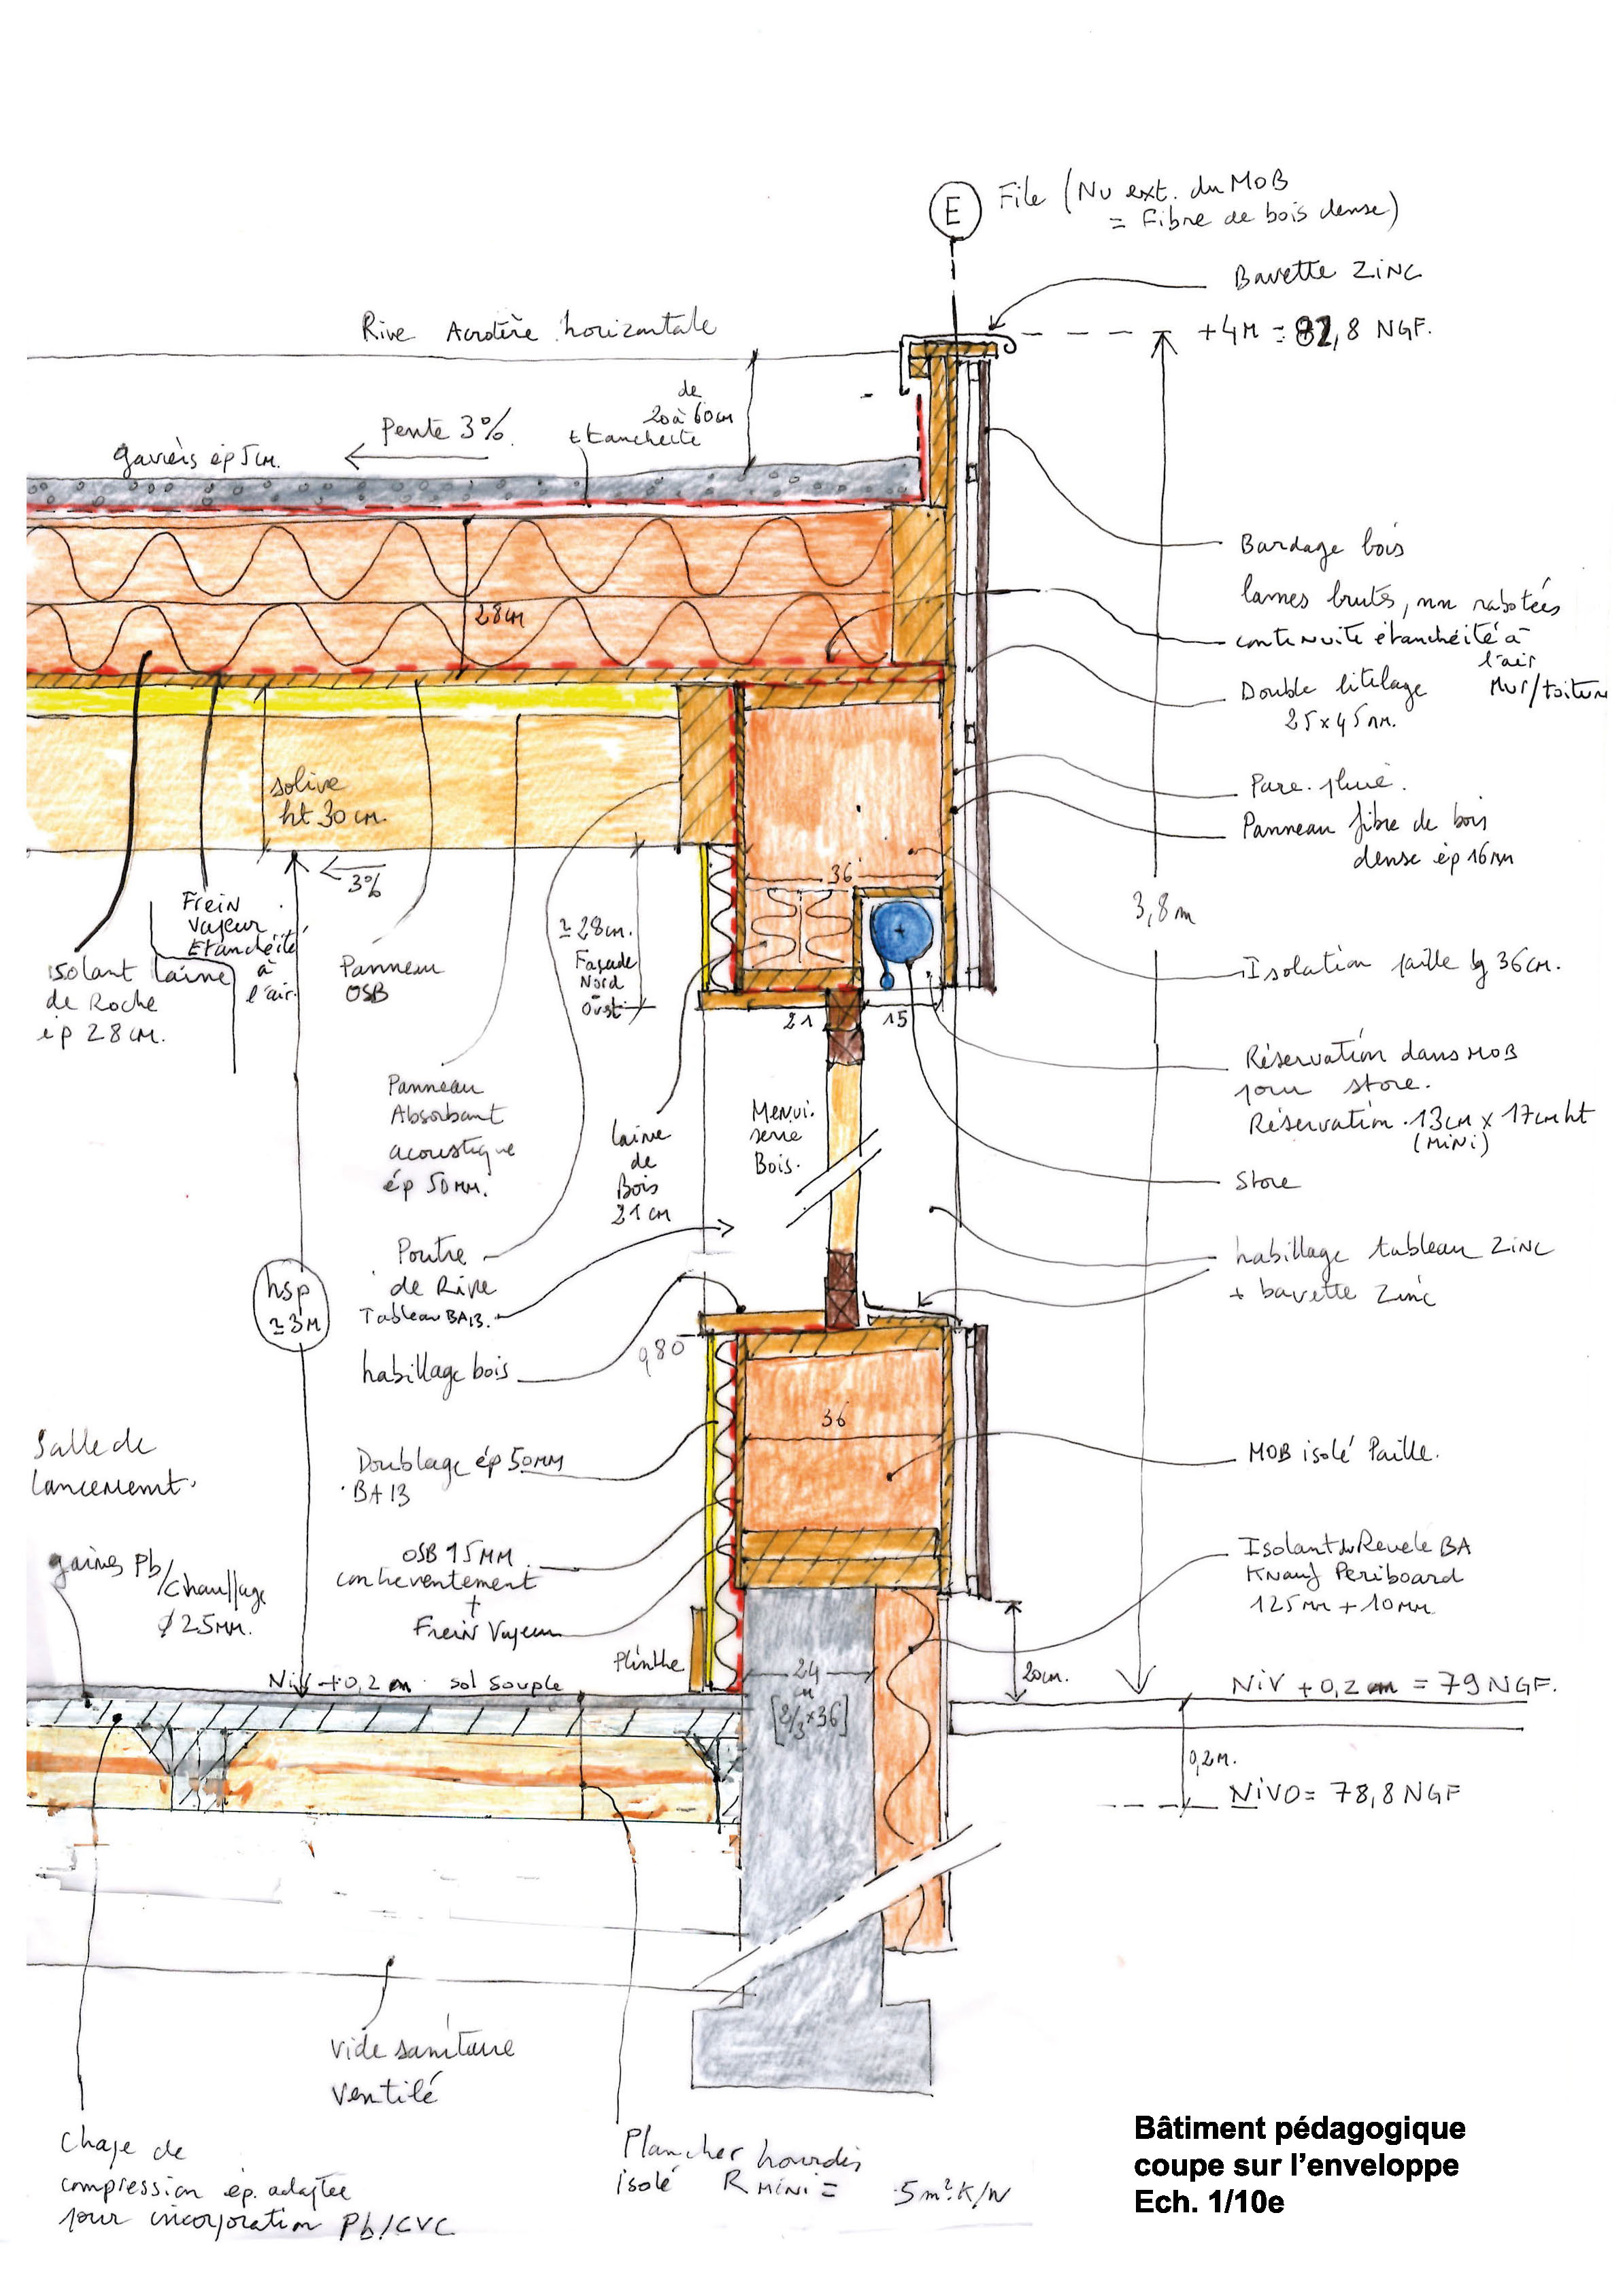 E
File (Nu ext. du MOB
= Fibre de bois dense)
Bavette ZiNC
+4M = 82,8 NGF.
Rive Acrotère horizontale
de
20 à 60cm
Etancheite
Pente 3%.
gaviers ép 5cm.
28cm
Bardage bois
lames brutes, nn rabotées
contenuite étanchéité à
l'air
Mur/toiture
Double litelage
25x45mm.
Pare-pluie.
Panneau fibre de bois
dense ép 16mm
solive
ht 30cm.
3%
36
3,8m
Frein
Vapeur
Etancheité
à
l'air.
isolant laine
de Roche
ép 28cm.
Panneau
OSB
≃28cm.
Façade
Nord
Ouest
Isolation paille lg 36cm.
21
15
Réservation dans MOB
pour store.
Réservation 13cm x 17cm ht
(MiNi)
Panneau
Absorbant
acoustique
ép 50mm.
laine
de
Bois
21cm
Menui-
serie
Bois.
Store
Poutre
de Rive
Tableau BA13.
habillage tableau ZiNC
+ bavette Zinc
hsp
≃3M
habillage bois
0,80
36
Salle de
lancement.
Doublage ép 50mm
BA13
MOB isolé Paille.
gaines Pb/
Chauffage
Ø 25mm.
OSB 15MM
contreventement
+
Frein Vapeur
Isolant du Revele BA
Knauf Periboard
125mm + 10mm
Plinthe
20cm.
24
=
[2/3x36]
Niv +0,2m sol souple
NiV +0,2m = 79 NGF.
0,2m.
NiVO = 78,8 NGF
vide sanitaire
ventilé
Chape de
compression ép. adaptée
pour incorporation Pb/CVC
Plancher hourdis
isolé R MiNi = 5m².K/W
Bâtiment pédagogique
coupe sur l'enveloppe
Ech. 1/10e